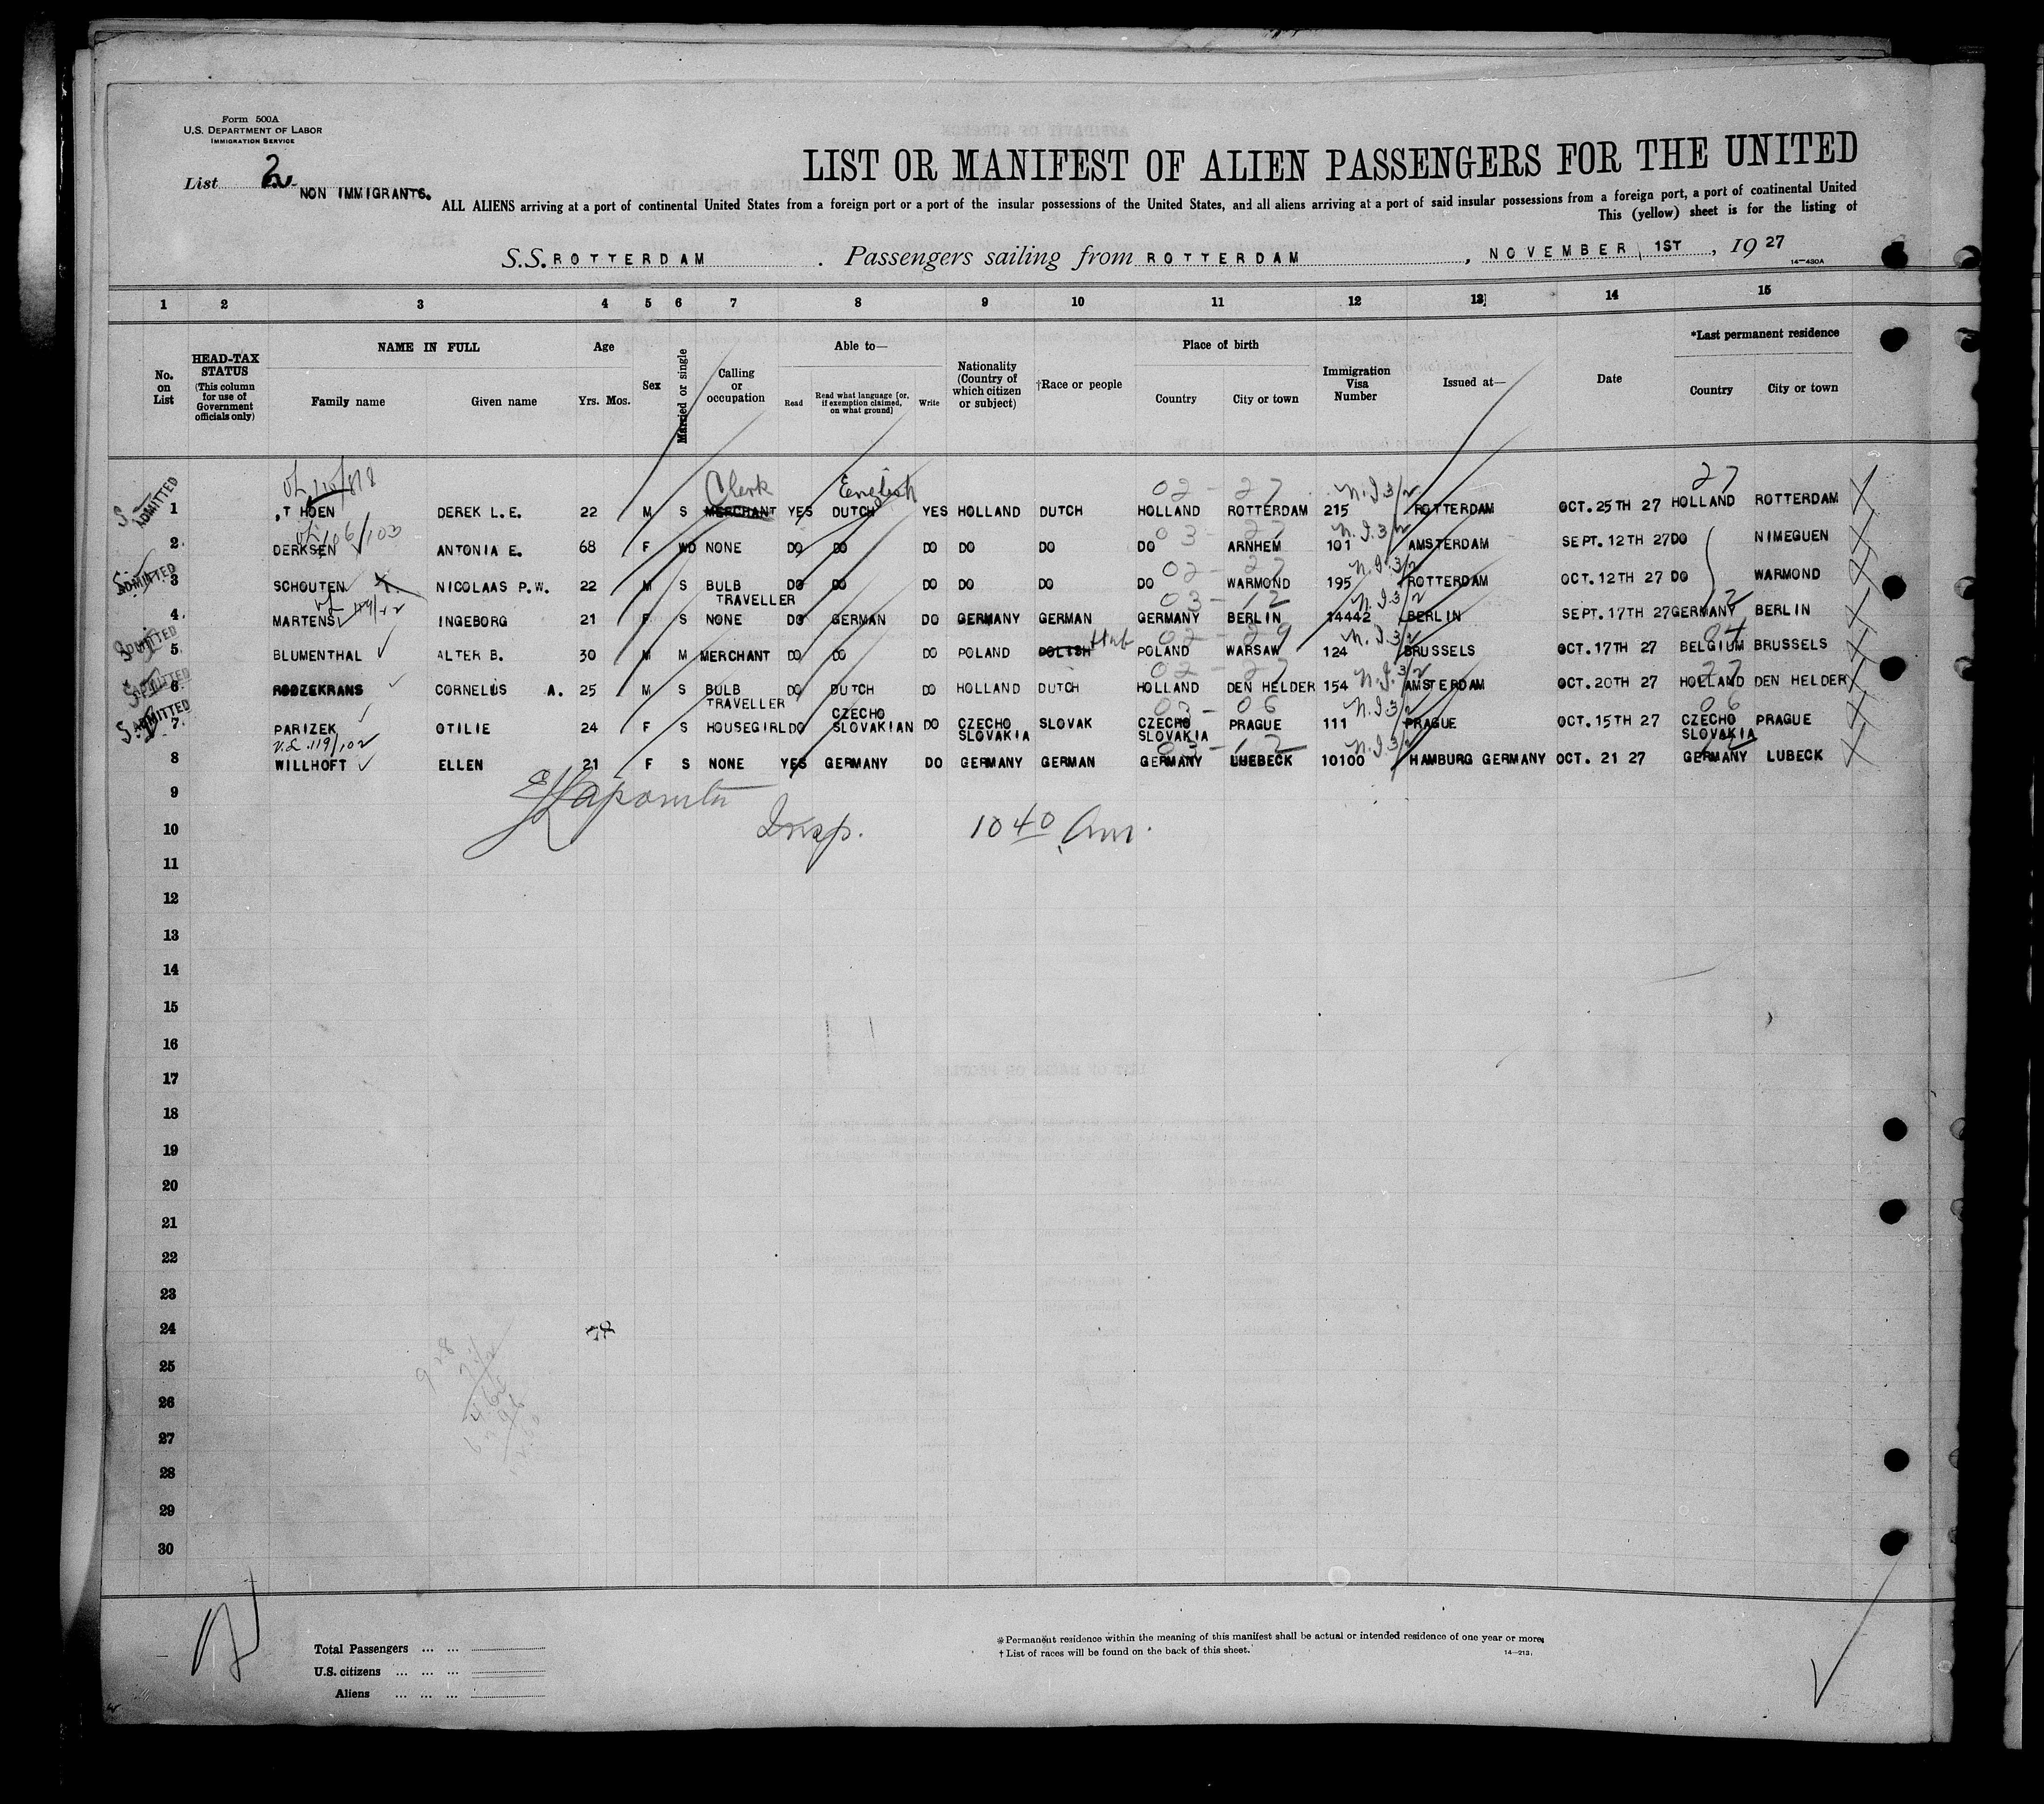 Form 500A
U.S. DEPARTMENT OF LABOR
IMMIGRATION SERVICE
List 2
NON IMMIGRANTS.
LIST OR MANIFEST OF ALIEN PASSENGERS FOR THE UNITED
ALL ALIENS arriving at a port of continental United States from a foreign port or a port of the insular possessions of the United States, and all aliens arriving at a port of said insular possessions from a foreign port, a port of continental United
This (yellow) sheet is for the listing of
S.S. ROTTERDAM . Passengers sailing from ROTTERDAM , NOVEMBER 1ST , 19 27
14—430A
1 2 3 4 5 6 7 8 9 10 11 12 13 14 15
No. on List HEAD-TAX STATUS (This column for use of Government officials only) NAME IN FULL Family name Given name Age Yrs. Mos. Sex Married or single Calling or occupation Able to— Read Read what language [or, if exemption claimed, on what ground] Write Nationality (Country of which citizen or subject) †Race or people Place of birth Country City or town Immigration Visa Number Issued at— Date *Last permanent residence Country City or town
Clerk English 02 - 27 N.I 3/2 27
ADMITTED 1 ,T HOEN DEREK L.E. 22 M S MERCHANT YES DUTCH YES HOLLAND DUTCH HOLLAND ROTTERDAM 215 ROTTERDAM OCT.25TH 27 HOLLAND ROTTERDAM
106/103 03 - 27 N.I.3/2
2. DERKSEN ANTONIA E. 68 F WD NONE DO DO DO DO DO DO ARNHEM 101 AMSTERDAM SEPT.12TH 27 DO NIMEGUEN
02 - 27 N.I.3/2
ADMITTED 3 SCHOUTEN NICOLAAS P.W. 22 M S BULB TRAVELLER DO DO DO DO DO DO WARMOND 195 ROTTERDAM OCT.12TH 27 DO WARMOND
03 - 12 N.I.3/2 12
4. MARTENS INGEBORG 21 F S NONE DO GERMAN DO GERMANY GERMAN GERMANY BERLIN 14442 BERLIN SEPT.17TH 27 GERMANY BERLIN
Heb 02 - 29 N.I.3/2 84
ADMITTED 5. BLUMENTHAL ALTER B. 30 M M MERCHANT DO DO DO POLAND POLISH POLAND WARSAW 124 BRUSSELS OCT.17TH 27 BELGIUM BRUSSELS
02 - 27 N.I.3/2 27
ADMITTED 6. ROOZEKRANS CORNELUS A. 25 M S BULB TRAVELLER DO DUTCH DO HOLLAND DUTCH HOLLAND DEN HELDER 154 AMSTERDAM OCT.20TH 27 HOLLAND DEN HELDER
03 - 06 N.I.3/2 06
ADMITTED 7. PARIZEK OTILIE 24 F S HOUSEGIRL DO CZECHO SLOVAKIAN DO CZECHO SLOVAKIA SLOVAK CZECHO SLOVAKIA PRAGUE 111 PRAGUE OCT.15TH 27 CZECHO SLOVAKIA PRAGUE
V.L. 119/102 03 - 12 N.I.3/2 12
8 WILLHOFT ELLEN 21 F S NONE YES GERMANY DO GERMANY GERMAN GERMANY LUEBECK 10100 HAMBURG GERMANY OCT. 21 27 GERMANY LUBECK
9
10 Insp. 10 40 Am.
11
12
13
14
15
16
17
18
19
20
21
22
23
24
25
26
27
28
29
30
Total Passengers ... ...
U.S. citizens ... ... ...
Aliens ... ... ...
*Permanent residence within the meaning of this manifest shall be actual or intended residence of one year or more.
† List of races will be found on the back of this sheet.
14—213